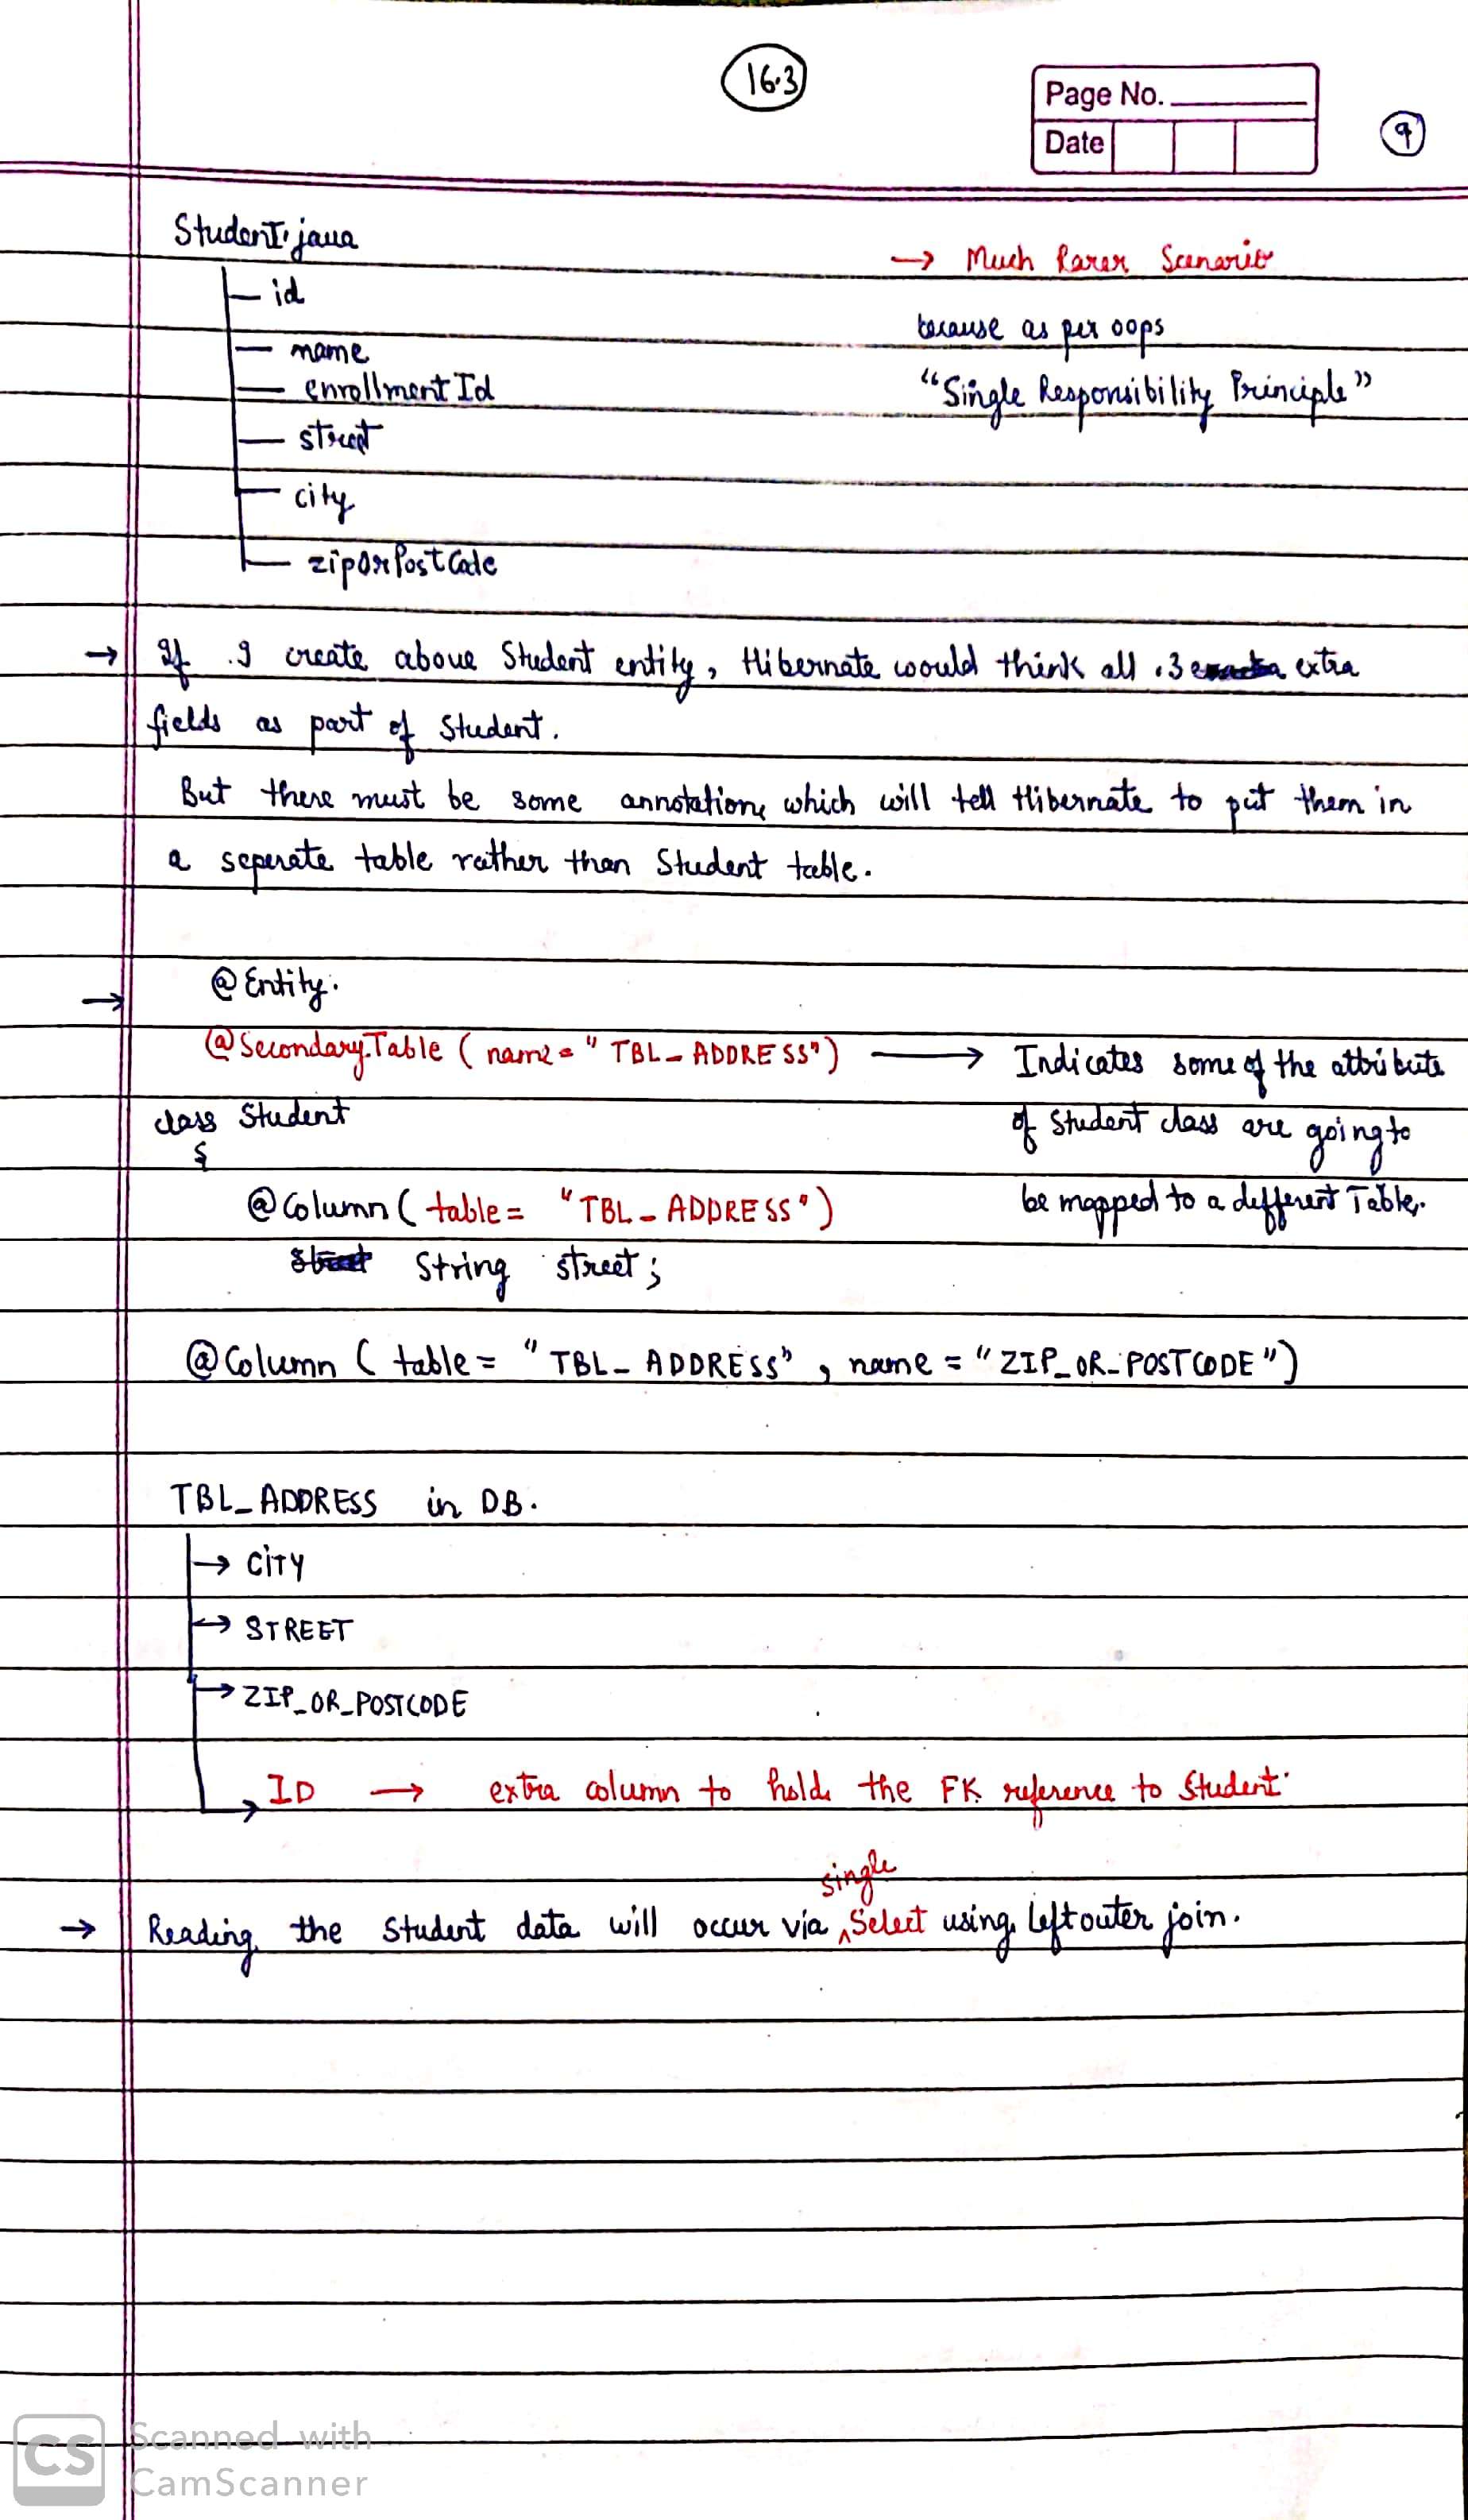 16.3
Page No.
Date
9
Student.java
→ Much Rarer Scenario
id
because as per oops
name
"Single Responsibility Principle"
enrollment Id
street
city
zipOrPostCode
→ If I create above Student entity, Hibernate would think all 3 extra
fields as part of Student.
But there must be some annotation, which will tell Hibernate to put them in
a seperate table rather than Student table.
→ @Entity.
@SecondaryTable ( name = "TBL_ADDRESS") → Indicates some of the attribute
class Student
of Student class are going to
{
be mapped to a different Table.
@Column ( table = "TBL_ADDRESS")
String street;
@Column ( table = "TBL_ADDRESS", name = "ZIP_OR_POSTCODE")
TBL_ADDRESS in DB.
→ CITY
→ STREET
→ ZIP_OR_POSTCODE
→ ID → extra column to hold the FK reference to Student.
single
→ Reading the Student data will occur via ^Select using Left outer join.
CS Scanned with
CamScanner